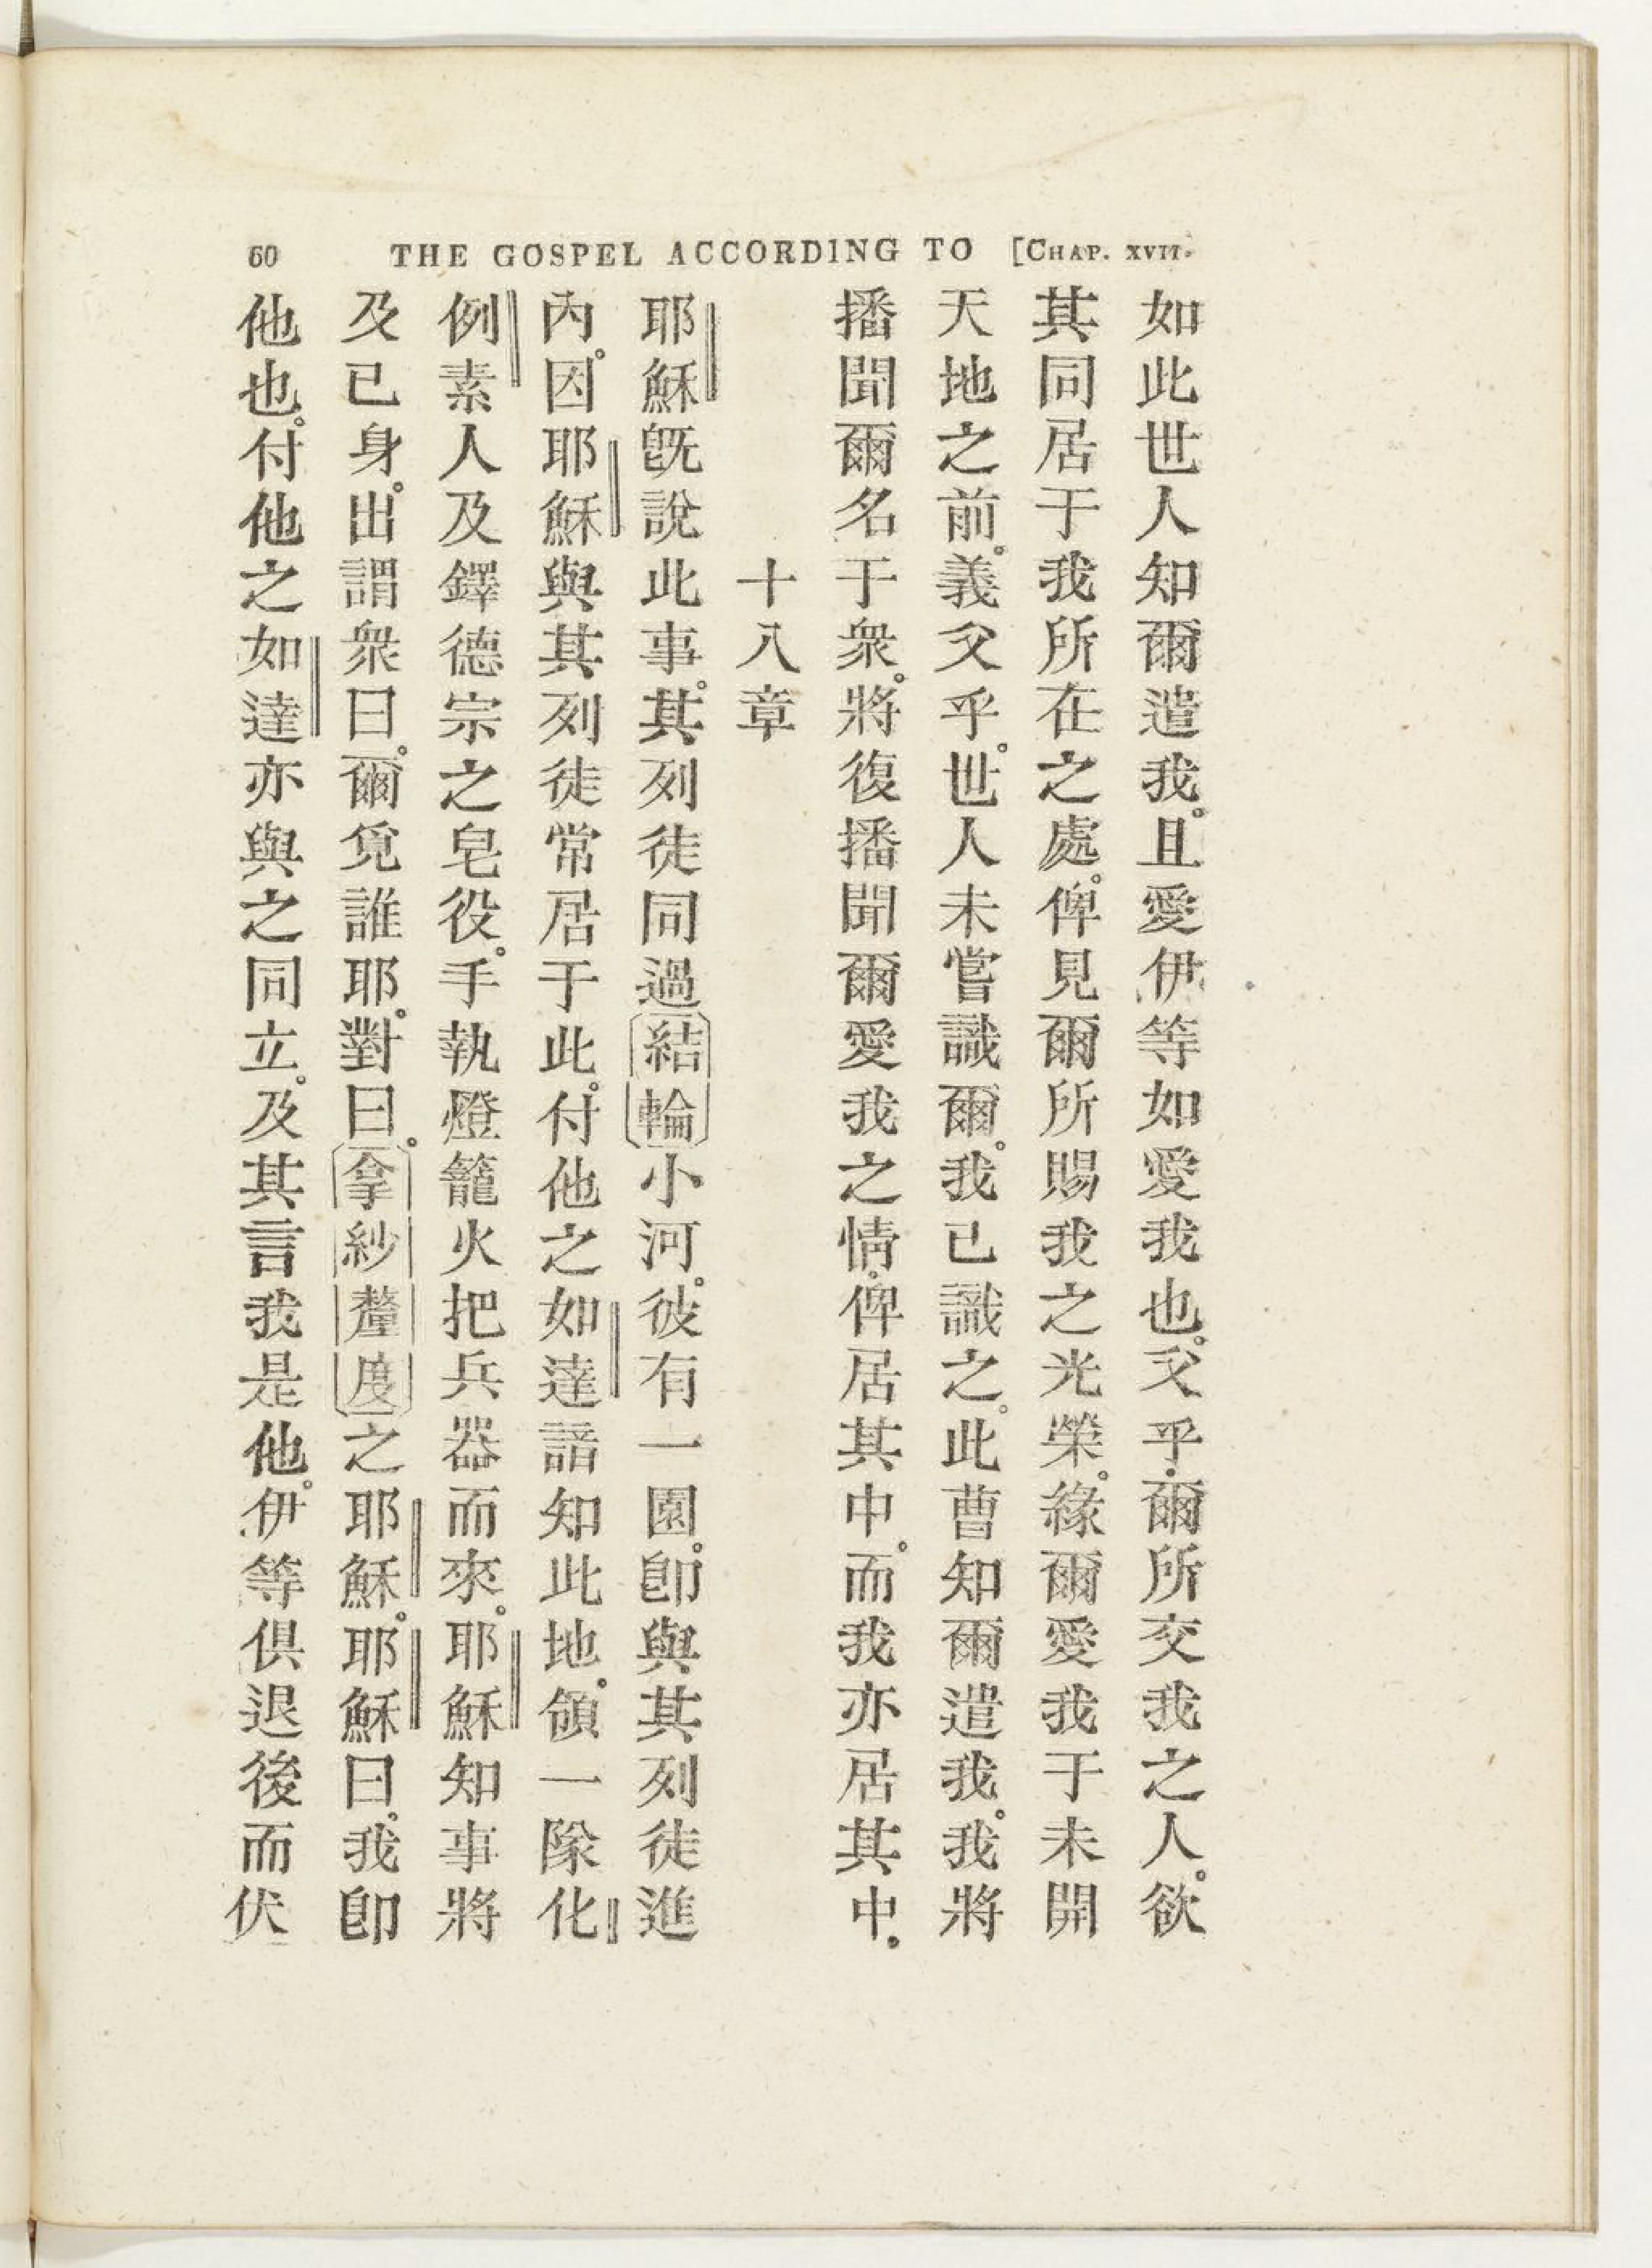 60 THE GOSPEL ACCORDING TO [CHAP. XVII.
如此世人知爾遣我。且愛伊等如愛我也。父乎。爾所交我之人。欲
其同居于我所在之處。俾見爾所賜我之光榮。緣爾愛我于未開
天地之前。義父乎。世人未嘗識爾。我已識之。此曹知爾遣我。我將
播聞爾名于衆。將復播聞爾愛我之情。俾居其中。而我亦居其中。
十八章
耶穌旣說此事。其列徒同過結輪小河。彼有一園。卽與其列徒進
內。因耶穌與其列徒常居于此。付他之如達諳知此地。領一隊化
例素人及鐸德宗之皂役。手執燈籠火把兵器而來。耶穌知事將
及已身。出謂衆曰。爾覓誰耶。對曰。拿紗釐度之耶穌。耶穌曰。我卽
他也。付他之如達亦與之同立。及其言我是他。伊等俱退後而伏